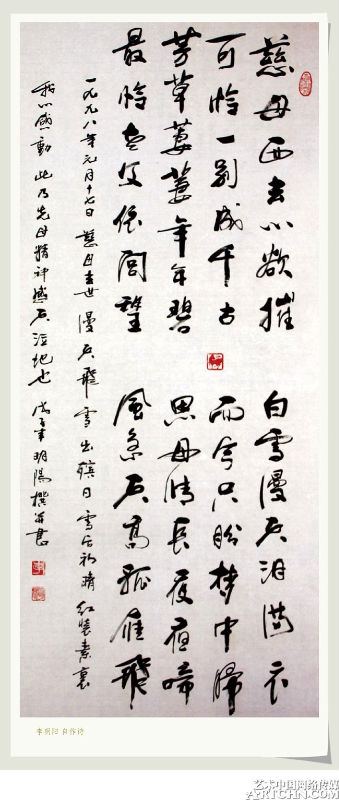 慈母西去心欲摧 白雪漫天泪满衣
可怜一别成千古 而今只盼梦中歸
芳草萋萋年年碧 思母情長夜夜啼
最怜老父依闾望 風急天高孤雁飛
一九九八年元月十七日 慈母去世漫天飛雪出殯日雪后初晴红装素裹
我心感動此乃先母精神感天泣地也 戊寅明陽撰并書
李明阳 自作诗
艺术中国网络传媒
ARTCHN.COM